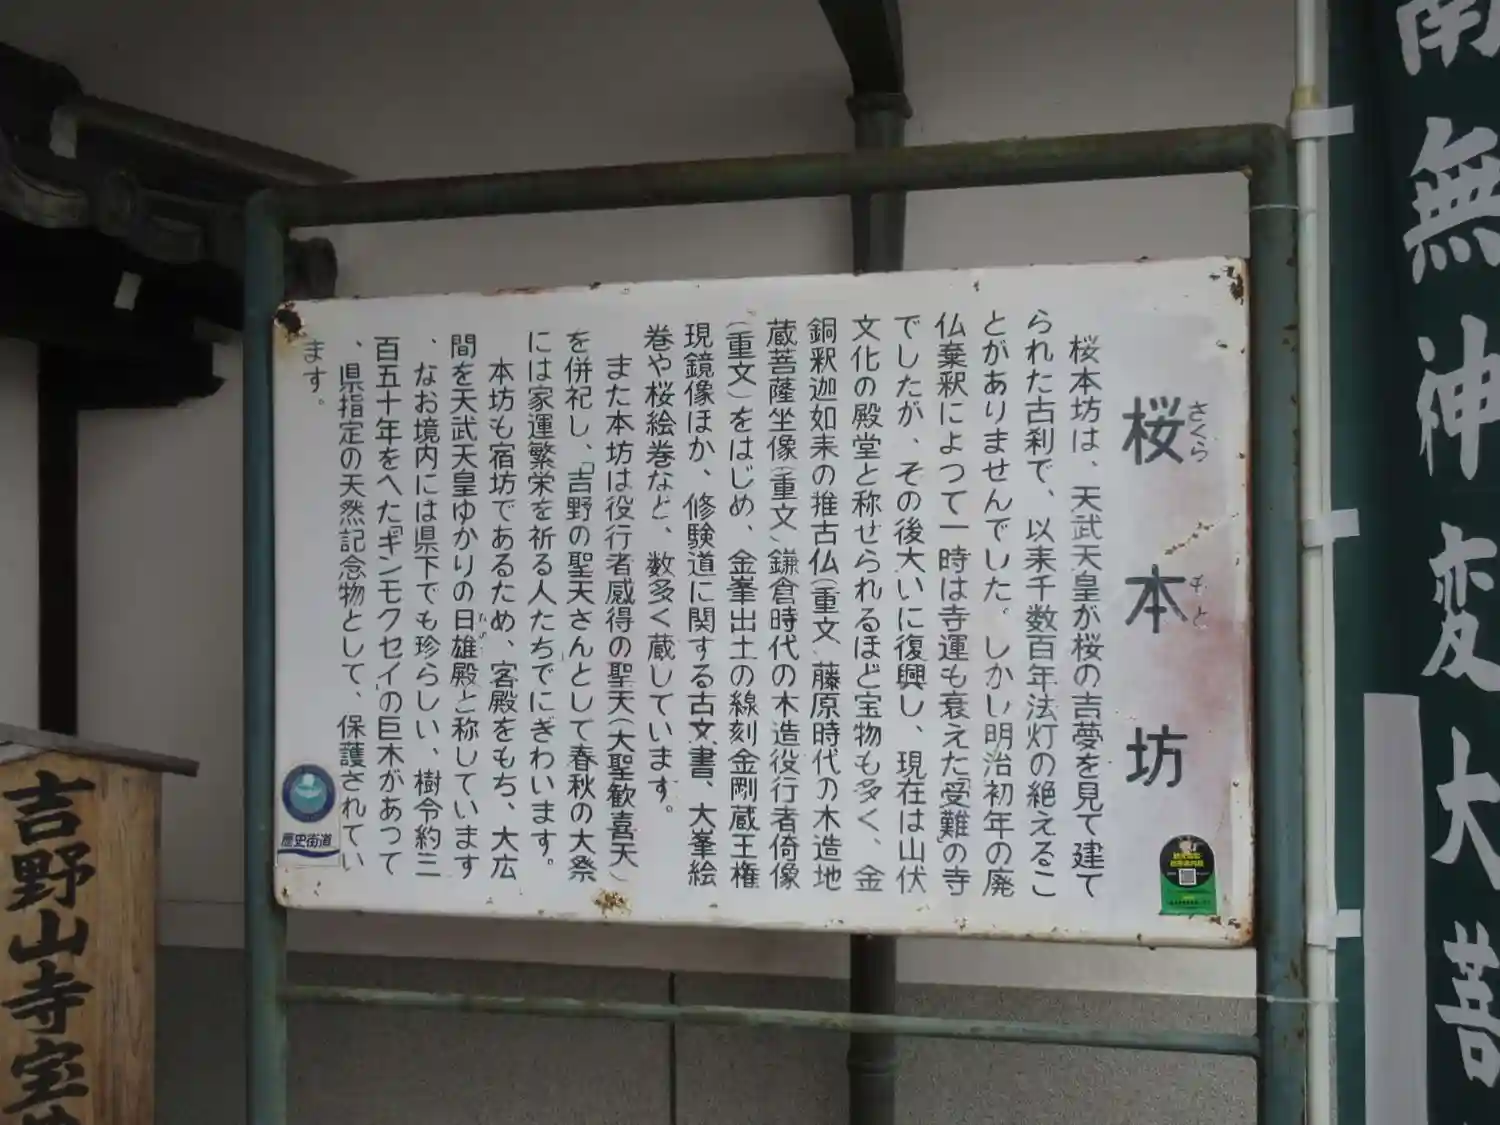 桜本坊
さくら
もと
桜本坊は、天武天皇が桜の吉夢を見て建て
られた古刹で、以来千数百年法灯の絶えるこ
とがありませんでした。しかし明治初年の廃
仏棄釈によつて一時は寺運も衰えた「受難」の寺
でしたが、その後大いに復興し、現在は山伏
文化の殿堂と称せられるほど宝物も多く、金
銅釈迦如来の推古仏(重文、藤原時代の木造地
蔵菩薩坐像(重文、鎌倉時代の木造役行者倚像
(重文)をはじめ、金峯出土の線刻金剛蔵王権
現鏡像ほか、修験道に関する古文書、大峯絵
巻や桜絵巻など、数多く蔵しています。
また本坊は役行者感得の聖天(大聖歓喜天)
を併祀し、「吉野の聖天さん」として春秋の大祭
には家運繁栄を祈る人たちでにぎわいます。
本坊も宿坊であるため、客殿をもち、大広
間を天武天皇ゆかりの日雄殿と称しています
、なお境内には県下でも珍らしい、樹令約三
百五十年をへた「ギンモクセイ」の巨木があって
、県指定の天然記念物として、保護されてい
ます。
歴史街道
南無神変大菩
吉野山寺宝